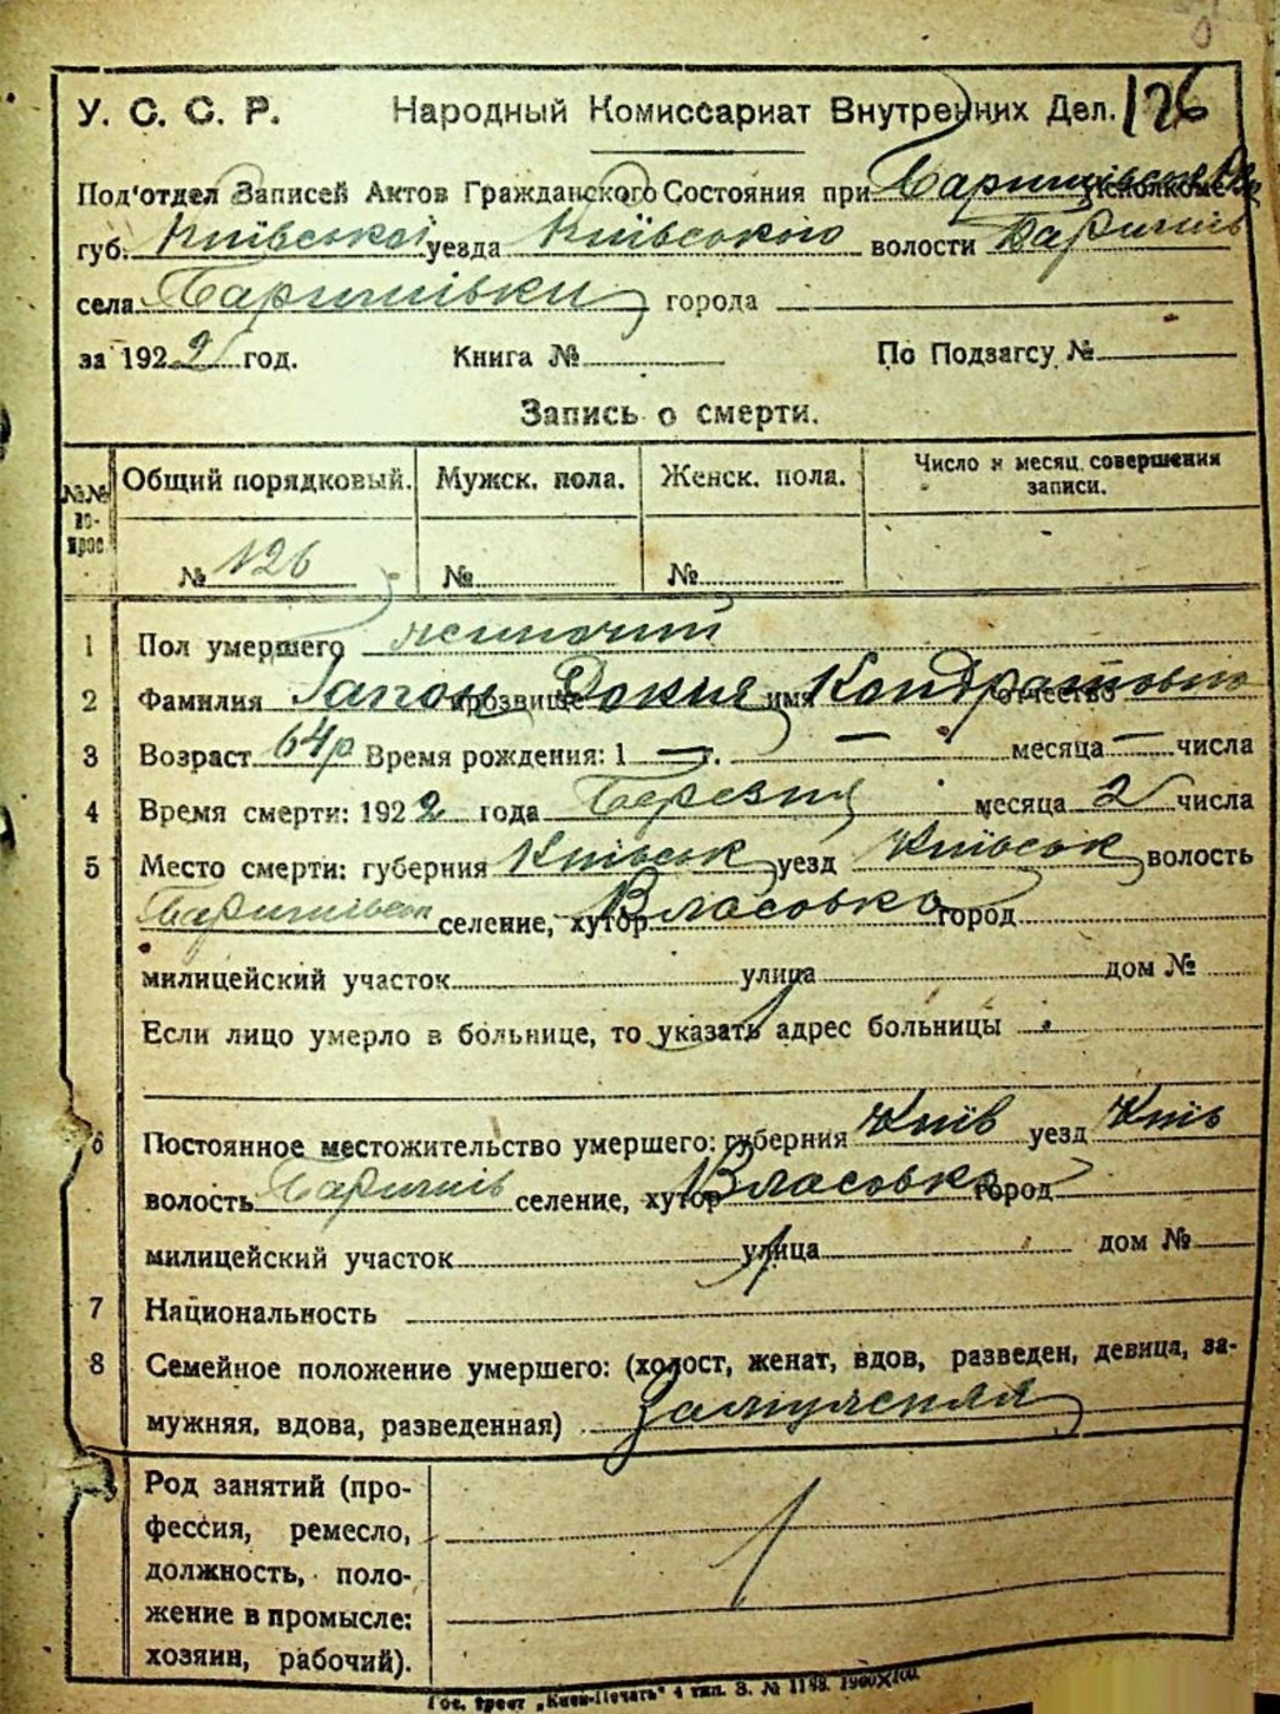 У. С. С. Р. Народный Комиссариат Внутренних Дел. 126
Под'отдел Записей Актов Гражданского Состояния при исполкоме
губ. Київської уезда Київського волости Баришів
села Баришівки города
за 1922 год. Книга № По Подзагсу №
Запись о смерти.
№№ вопрос Общий порядковый. Мужск. пола. Женск. пола. Число и месяц совершения записи.
№ 126 № №
1 Пол умершего жиночий
2 Фамилия Гапон прозвище Докия имя Кондратовна отчество
3 Возраст 64р Время рождения: 1 — г. — месяца — числа
4 Время смерти: 1922 года Березня месяца 2 числа
5 Место смерти: губерния Київськ уезд Київськ волость
Баришівськ селение, хутор Власовка город
милицейский участок улица дом №
Если лицо умерло в больнице, то указать адрес больницы
6 Постоянное местожительство умершего: губерния Київ уезд Київ
волость Баришів селение, хутор Власовка город
милицейский участок улица дом №
7 Национальность
8 Семейное положение умершего: (холост, женат, вдов, разведен, девица, за-
мужняя, вдова, разведенная) Замужняя
Род занятий (про-
фессия, ремесло,
должность, поло-
жение в промысле:
хозяин, рабочий).
Гос. трест „Киев-Печать" 4 тип. З. № 1188. 1900X100.